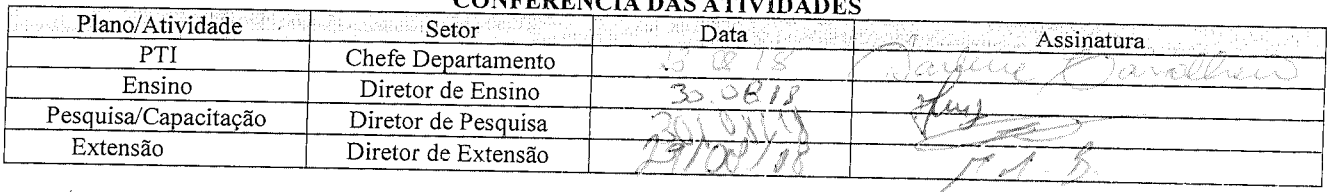 CONFERÊNCIA DAS ATIVIDADES
Plano/Atividade Setor Data Assinatura
PTI Chefe Departamento
Ensino Diretor de Ensino 30.08.18
Pesquisa/Capacitação Diretor de Pesquisa
Extensão Diretor de Extensão 29/08/18